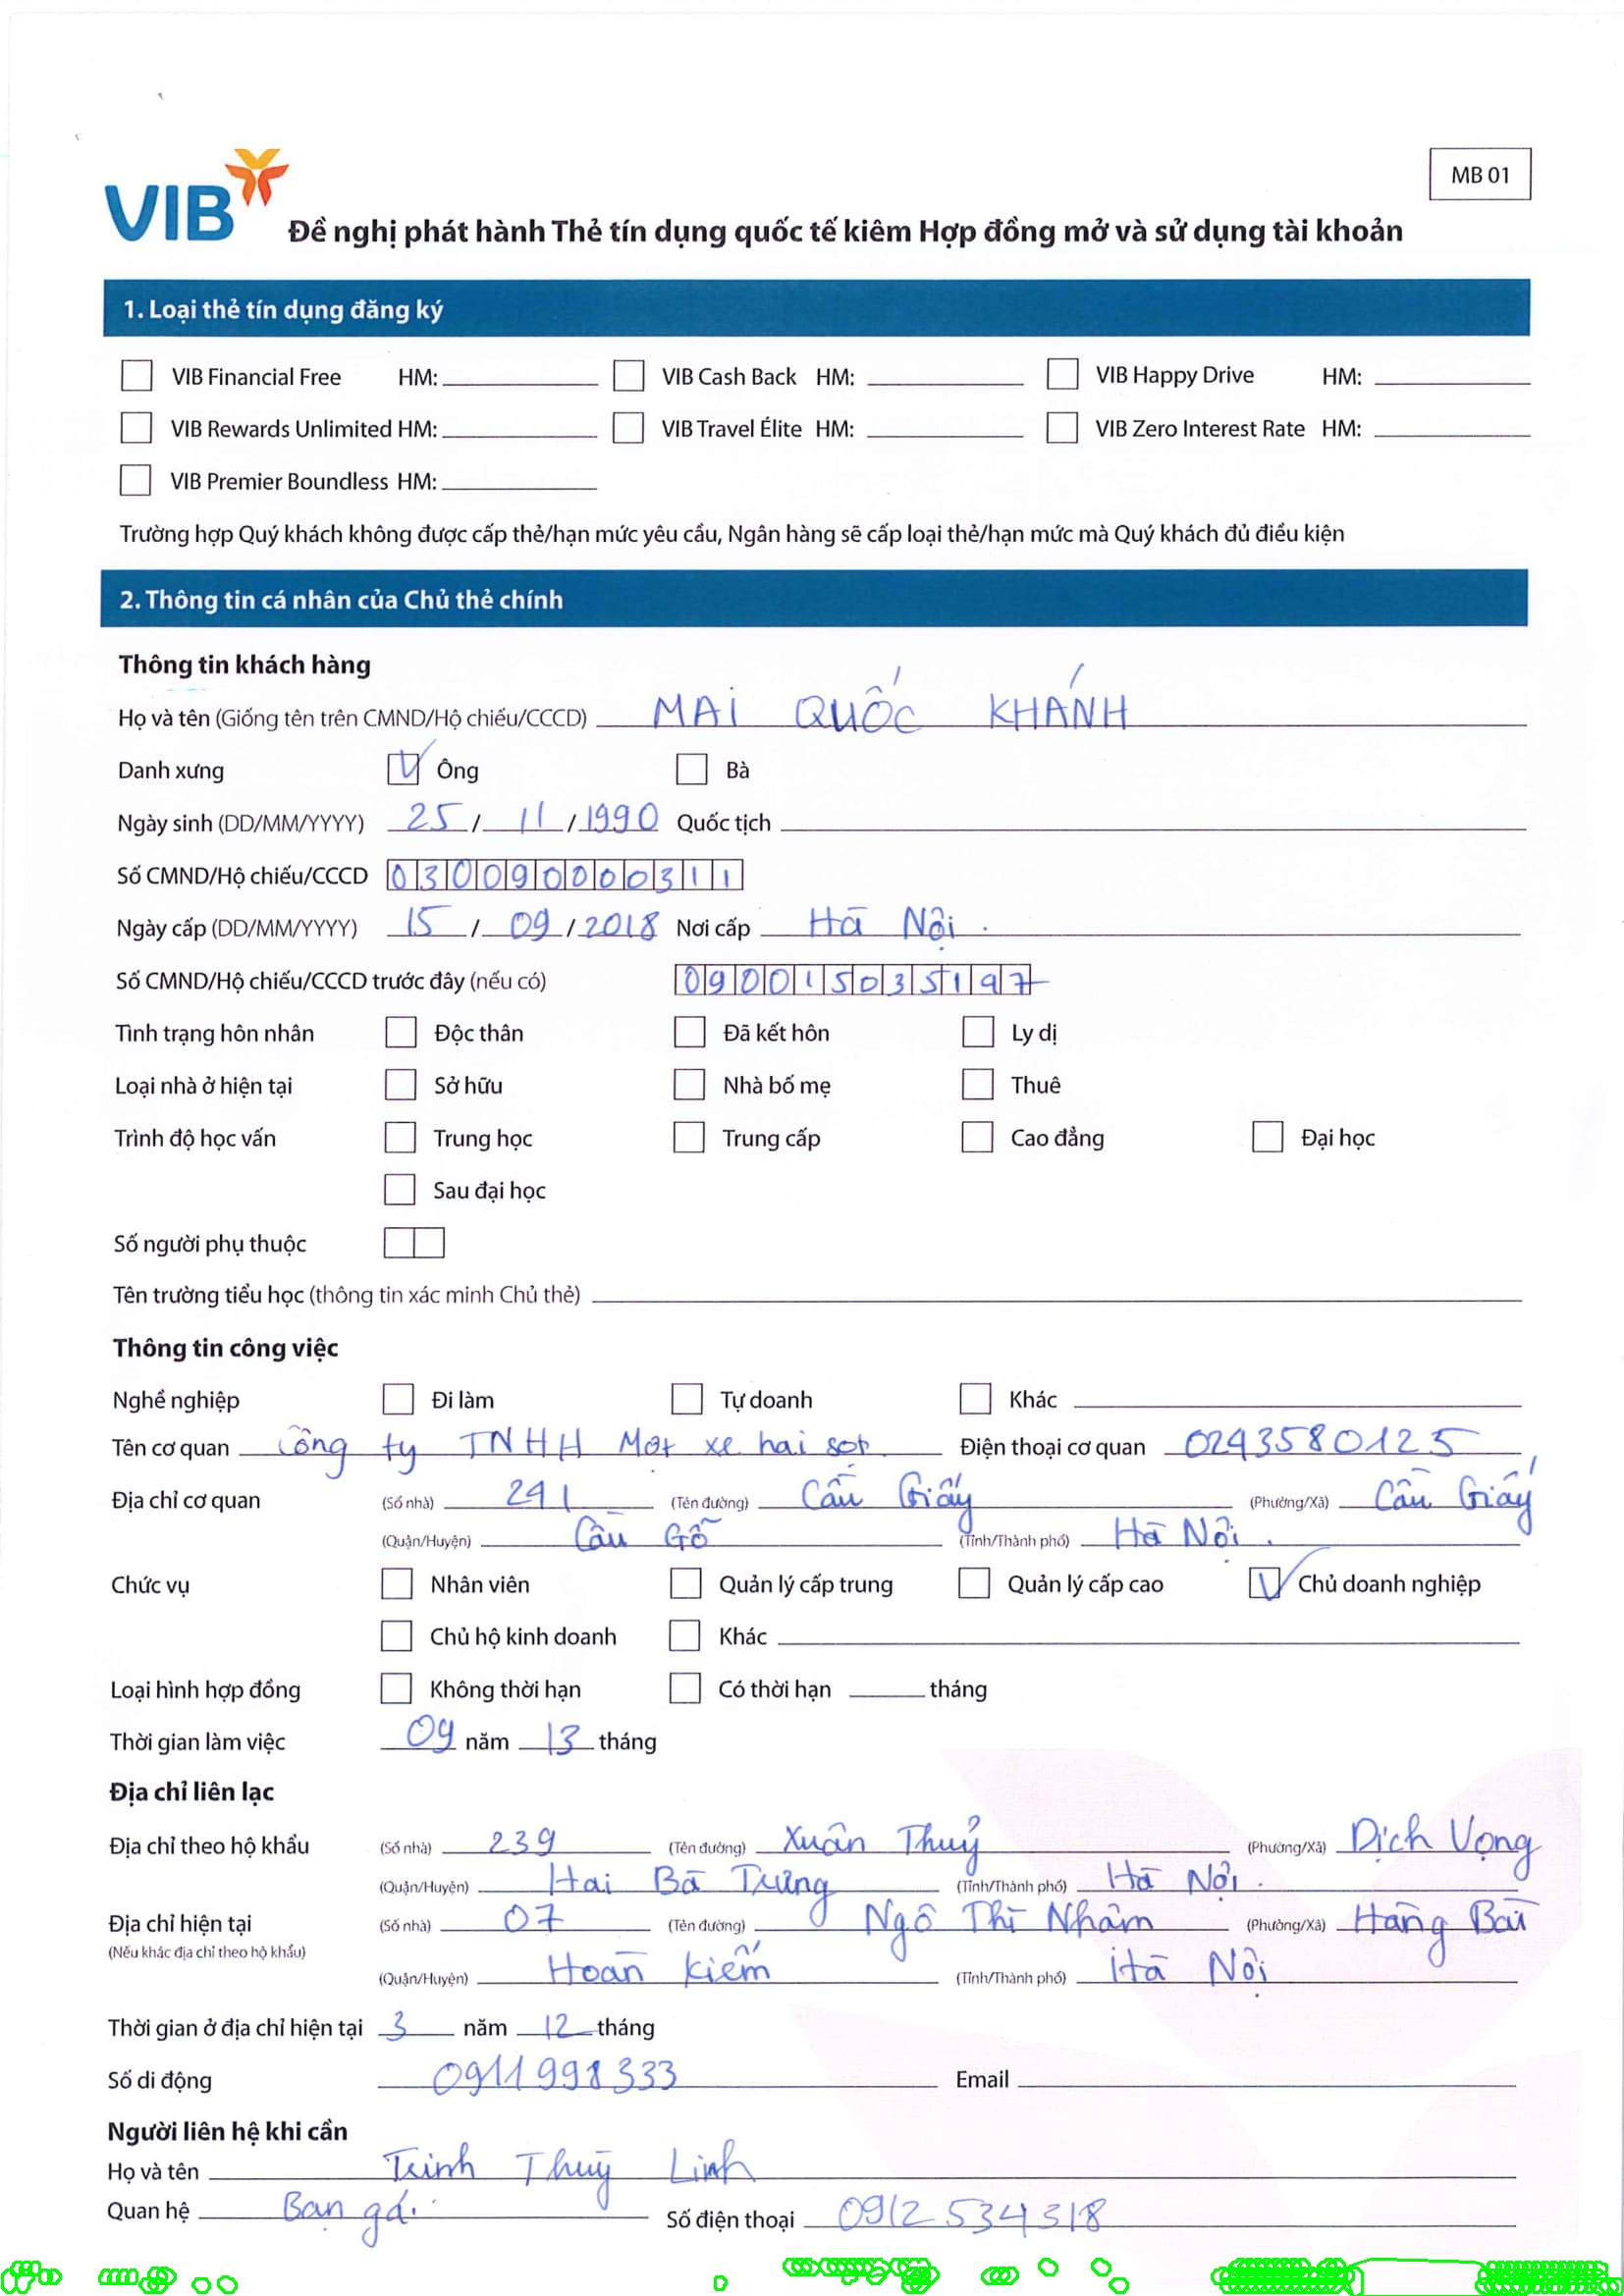 MB 01
VIB
Đề nghị phát hành Thẻ tín dụng quốc tế kiêm Hợp đồng mở và sử dụng tài khoản
1. Loại thẻ tín dụng đăng ký
VIB Financial Free HM: VIB Cash Back HM: VIB Happy Drive HM:
VIB Rewards Unlimited HM: VIB Travel Élite HM: VIB Zero Interest Rate HM:
VIB Premier Boundless HM:
Trường hợp Quý khách không được cấp thẻ/hạn mức yêu cầu, Ngân hàng sẽ cấp loại thẻ/hạn mức mà Quý khách đủ điều kiện
2. Thông tin cá nhân của Chủ thẻ chính
Thông tin khách hàng
Họ và tên (Giống tên trên CMND/Hộ chiếu/CCCD) MAI QUỐC KHÁNH
Danh xưng Ông Bà
Ngày sinh (DD/MM/YYYY) 25 / 11 / 1990 Quốc tịch
Số CMND/Hộ chiếu/CCCD 030090000311
Ngày cấp (DD/MM/YYYY) 15 / 09 / 2018 Nơi cấp Hà Nội.
Số CMND/Hộ chiếu/CCCD trước đây (nếu có) 090015035197
Tình trạng hôn nhân Độc thân Đã kết hôn Ly dị
Loại nhà ở hiện tại Sở hữu Nhà bố mẹ Thuê
Trình độ học vấn Trung học Trung cấp Cao đẳng Đại học
Sau đại học
Số người phụ thuộc
Tên trường tiểu học (thông tin xác minh Chủ thẻ)
Thông tin công việc
Nghề nghiệp Đi làm Tự doanh Khác
Tên cơ quan Công ty TNHH Một xe hai Điện thoại cơ quan 0243580125
Địa chỉ cơ quan (Số nhà) 241 (Tên đường) Cầu Giấy (Phường/Xã) Cầu Giấy
(Quận/Huyện) Cầu Gỗ (Tỉnh/Thành phố) Hà Nội.
Chức vụ Nhân viên Quản lý cấp trung Quản lý cấp cao Chủ doanh nghiệp
Chủ hộ kinh doanh Khác
Loại hình hợp đồng Không thời hạn Có thời hạn tháng
Thời gian làm việc 09 năm 13 tháng
Địa chỉ liên lạc
Địa chỉ theo hộ khẩu (Số nhà) 239 (Tên đường) Xuân Thuỷ (Phường/Xã) Dịch Vọng
(Quận/Huyện) Hai Bà Trưng (Tỉnh/Thành phố) Hà Nội.
Địa chỉ hiện tại (Số nhà) 07 (Tên đường) Ngô Thì Nhậm (Phường/Xã) Hàng Bài
(Nếu khác địa chỉ theo hộ khẩu)
(Quận/Huyện) Hoàn Kiếm (Tỉnh/Thành phố) Hà Nội
Thời gian ở địa chỉ hiện tại 3 năm 12 tháng
Số di động 0911998333 Email
Người liên hệ khi cần
Họ và tên Trịnh Thuỳ Linh
Quan hệ Bạn gái Số điện thoại 0912534318